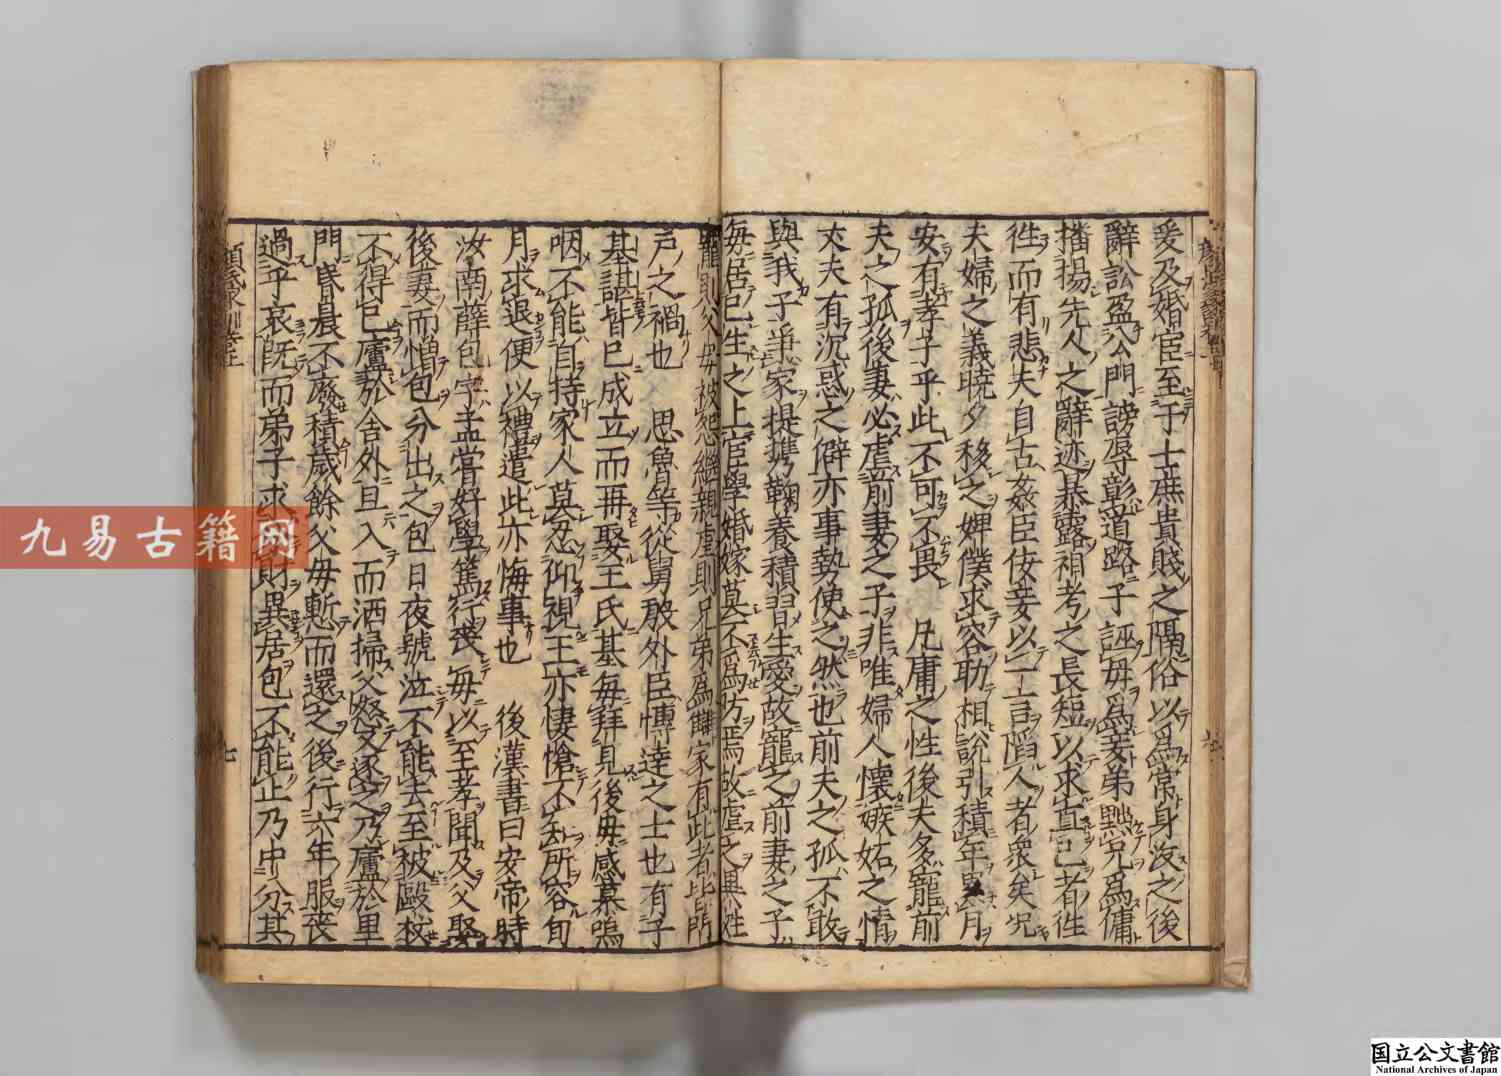 爰及婚宦至于士庶貴賤之隔俗以爲常身沒之後
辭訟盈公門謗辱彰道路子誣母爲妾弟黜兄爲傭
播揚先人之辭迹暴露祖考之長短以求直己者往
往而有悲夫自古姦臣佞妾以一言陷人者衆矣况
夫婦之義曉夕移之婢僕求容助相說引積年累月
安有孝子乎此不可不畏 凡庸之性後夫多寵前
夫之孤後妻必虐前妻之子非唯婦人懷嫉妬之情
丈夫有沉惑之僻亦事勢使之然也前夫之孤不敢
與我子爭家提携鞠養積習生愛故寵之前妻之子
每居己生之上宦學婚嫁莫不爲防焉故虐之異姓
寵則父母被怨繼親虐則兄弟爲讎家有此者皆門
戸之禍也 思魯等從舅殷外臣博達之士也有子
基諶皆已成立而再娶王氏基每拜見後母感慕嗚
咽不能自持家人莫忍仰視王亦悽愴不知所容旬
月求退便以禮遣此亦悔事也 後漢書曰安帝時
汝南薛包字孟嘗好學篤行喪母以至孝聞及父娶
後妻而憎包分出之包日夜號泣不能去至被毆杖
不得已廬於舍外旦入而洒掃父怒又逐之乃廬於里
門昏晨不廢積歲餘父母慙而還之後行六年服喪
過乎哀既而弟子求財異居包不能止乃中分其
顔氏家訓卷上
七
九易古籍网
国立公文書館
National Archives of Japan